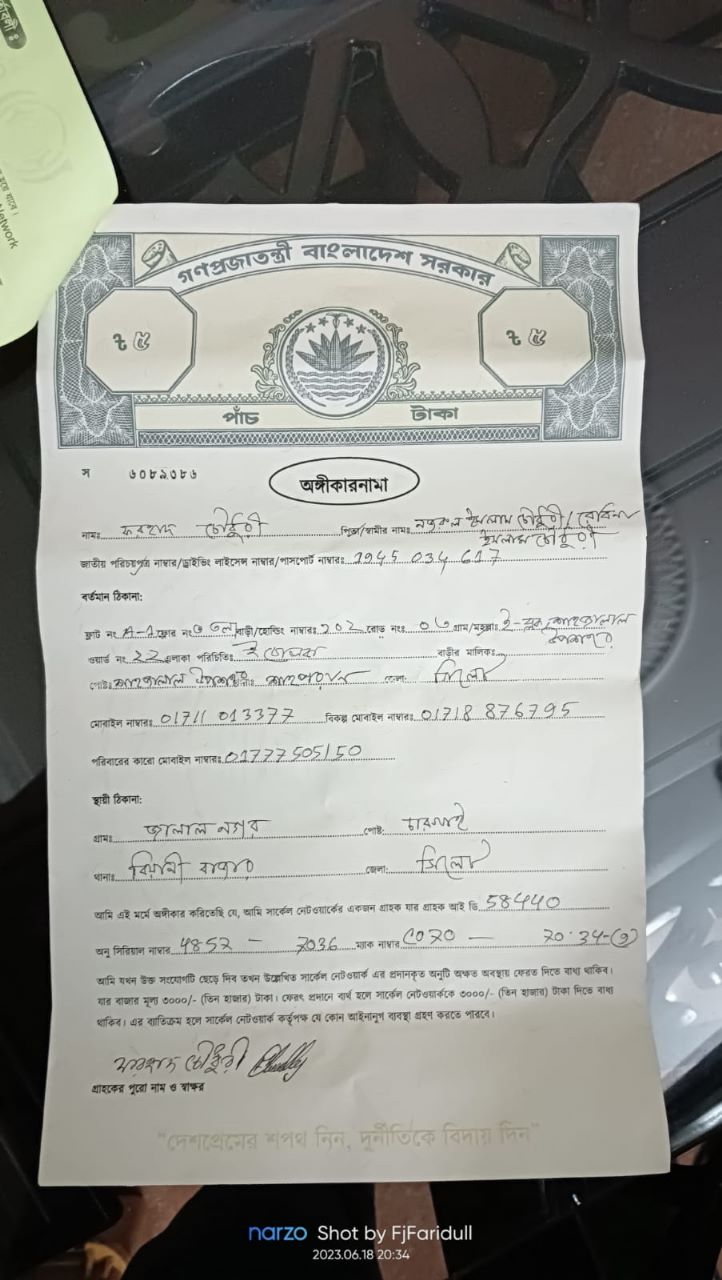 Network
গণপ্রজাতন্ত্রী বাংলাদেশ সরকার
৳ ৫ ৳ ৫
পাঁচ টাকা
স ৬০৮৯৩৮৬
অঙ্গীকারনামা
নামঃ ফরহাদ চৌধুরী পিতা/স্বামীর নামঃ নজরুল ইসলাম চৌধুরী/
ইসলাম চৌধুরী
জাতীয় পরিচয়পত্র নাম্বার/ড্রাইভিং লাইসেন্স নাম্বার/পাসপোর্ট নাম্বারঃ 1945 034 617
বর্তমান ঠিকানা:
ফ্লাট নং A-1 ফ্লোর নং ৩ তলা বাড়ী/হোল্ডিং নাম্বারঃ 202 রোড নংঃ গ্রাম/মহল্লাঃ ই-ব্লক শাহজালাল
উপশহর
ওয়ার্ড নং 22 এলাকা পরিচিতিঃ বাড়ীর মালিকঃ
পোষ্টঃ শাহজালাল উপশহর থানাঃ শাহপরান জেলা: সিলেট
মোবাইল নাম্বারঃ 01711 013377 বিকল্প মোবাইল নাম্বারঃ 01718 876795
পরিবারের কারো মোবাইল নাম্বারঃ 01777505150
স্থায়ী ঠিকানা:
গ্রামঃ জালাল নগর পোষ্ট: চারখাই
থানাঃ বিয়ানী বাজার জেলা: সিলেট
আমি এই মর্মে অঙ্গীকার করিতেছি যে, আমি সার্কেল নেটওয়ার্কের একজন গ্রাহক যার গ্রাহক আই ডি 58440
অনু সিরিয়াল নাম্বার 4852 - 7036 ম্যাক নাম্বার C070 - 70:34-(9)
আমি যখন উক্ত সংযোগটি ছেড়ে দিব তখন উল্লেখিত সার্কেল নেটওয়ার্ক এর প্রদানকৃত অনুটি অক্ষত অবস্থায় ফেরত দিতে বাধ্য থাকিব।
যার বাজার মূল্য ৩০০০/- (তিন হাজার) টাকা। ফেরৎ প্রদানে ব্যর্থ হলে সার্কেল নেটওয়ার্ককে ৩০০০/- (তিন হাজার) টাকা দিতে বাধ্য
থাকিব। এর ব্যতিক্রম হলে সার্কেল নেটওয়ার্ক কর্তৃপক্ষ যে কোন আইনানুগ ব্যবস্থা গ্রহণ করতে পারবে।
ফরহাদ চৌধুরী
গ্রাহকের পুরো নাম ও স্বাক্ষর
"দেশপ্রেমের শপথ নিন, দুর্নীতিকে বিদায় দিন"
narzo Shot by FjFaridull
2023.06.18 20:34